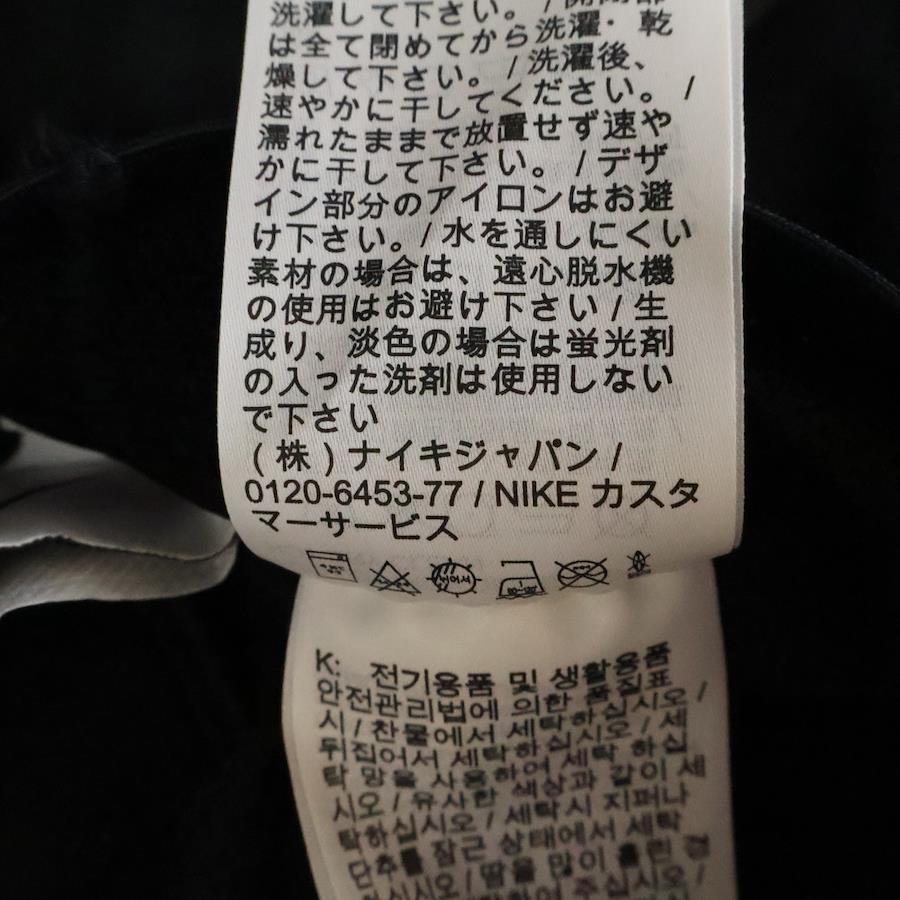 洗濯して下さい。/ 開閉部
は全て閉めてから洗濯・乾
燥して下さい。/ 洗濯後、
速やかに干してください。/
濡れたままで放置せず速や
かに干して下さい。/ デザ
イン部分のアイロンはお避
け下さい。/ 水を通しにくい
素材の場合は、遠心脱水機
の使用はお避け下さい / 生
成り、淡色の場合は蛍光剤
の入った洗剤は使用しない
で下さい
(株) ナイキジャパン /
0120-6453-77 / NIKE カスタ
マーサービス
K: 전기용품 및 생활용품
안전관리법에 의한 품질표
시 / 찬물에서 세탁하십시오 /
뒤집어서 세탁하십시오 / 세
탁 망을 사용하여 세탁 하십
시오 / 유사한 색상과 같이 세
탁하십시오 / 세탁시 지퍼나
단추를 잠근 상태에서 세탁
하십시오 / 땀을 많이 흘린